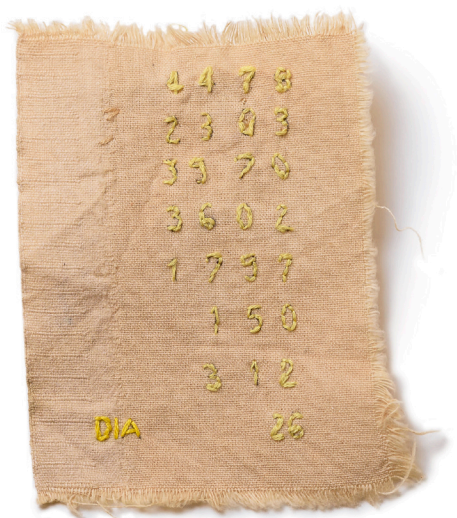 1478
2303
3970
3602
1797
150
312
DIA 26